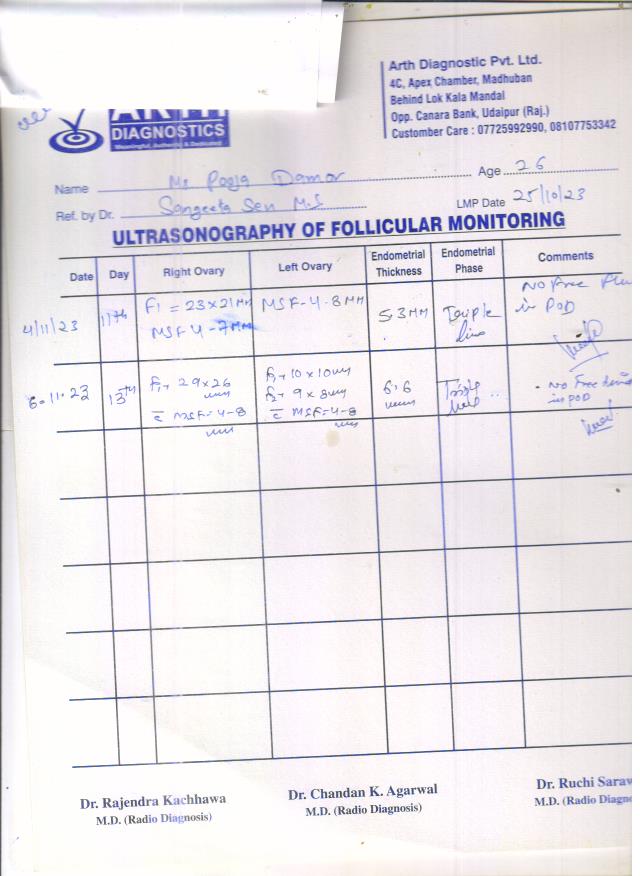 Arth Diagnostic Pvt. Ltd.
4C, Apex Chamber, Madhuban
Behind Lok Kala Mandal
Opp. Canara Bank, Udaipur (Raj.)
Custumber Care : 07725992990, 08107753342
ARTH
DIAGNOSTICS
Meaningful, Authentic & Dedicated
Name Ms Pooja Damor Age 26
Ref. by Dr. Sangeeta Sen M.S LMP Date 25/10/23
ULTRASONOGRAPHY OF FOLLICULAR MONITORING
Date Day Right Ovary Left Ovary Endometrial Thickness Endometrial Phase Comments
4/11/23 11th F1 = 23x21MM MSF-4-8MM 5.3MM Triple line NO Free in POD
MSF 4-7MM
6.11.23 13th f1, 29x26 mm f1, 10x10mm 6.6 mm Triple line - No Free in POD
c̄ MSF=4-8 mm f2, 9x8mm
c̄ MSF=4-8 mm
Dr. Rajendra Kachhawa
M.D. (Radio Diagnosis)
Dr. Chandan K. Agarwal
M.D. (Radio Diagnosis)
Dr. Ruchi Saraw
M.D. (Radio Diagno